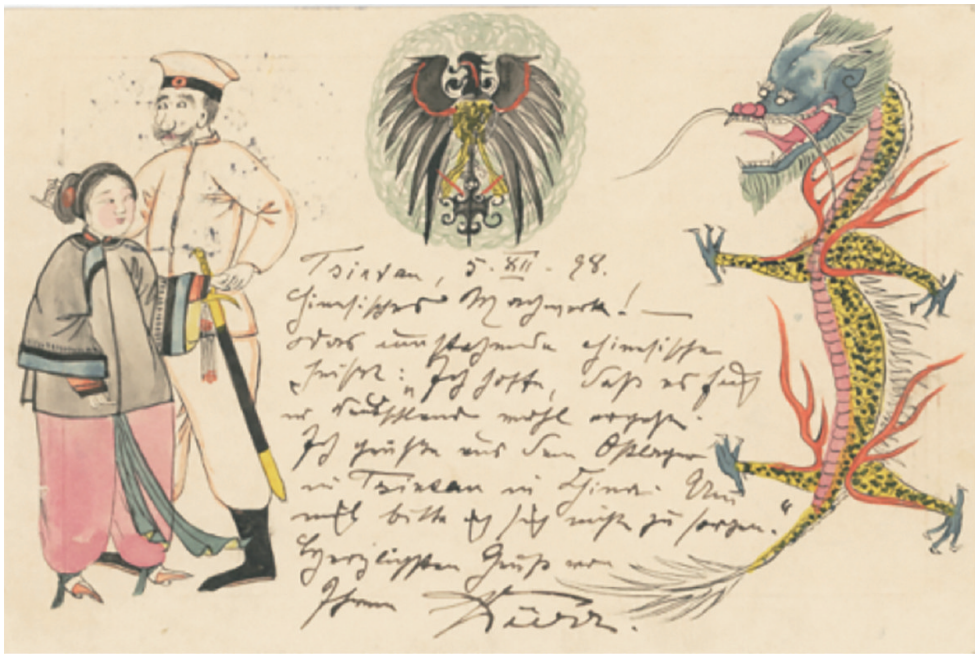 Tsintau, 5. XII. 98.
Chinesisches Machwerk! —
umstehende chinesische
heißt: „Ich hoffe, daß es
in Deutschland wohl ergehe.
Ich grüße aus dem Ostlager
in Tsintau in China. Um
mich bitte ich sich nicht zu sorgen."
Herzlichsten Gruß von
Ihrem